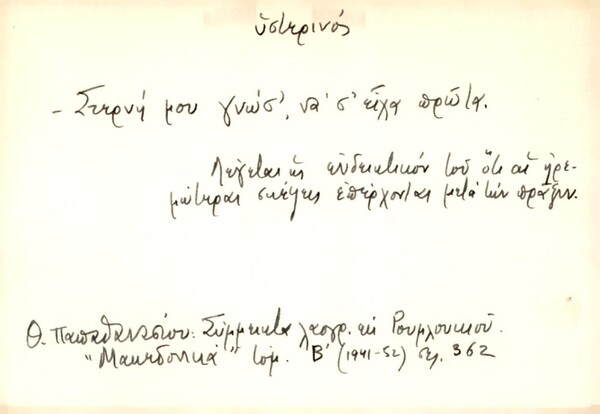 ὑστερινός
- Στερνή μου γνῶσ', νά σ' εἶχα πρῶτα.
Λέγεται ὡς ἐνδεικτικόν τοῦ ὅτι αἱ ἠρε-
μώτεραι σκέψεις ἐπέρχονται μετά τήν πρᾶξιν.
Θ. Παπαθανασίου: Σύμμεικτα λαογρ. ἐκ Ρουμλουκιοῦ.
"Μακεδονικά" τομ. Β' (1941-52) σελ. 362